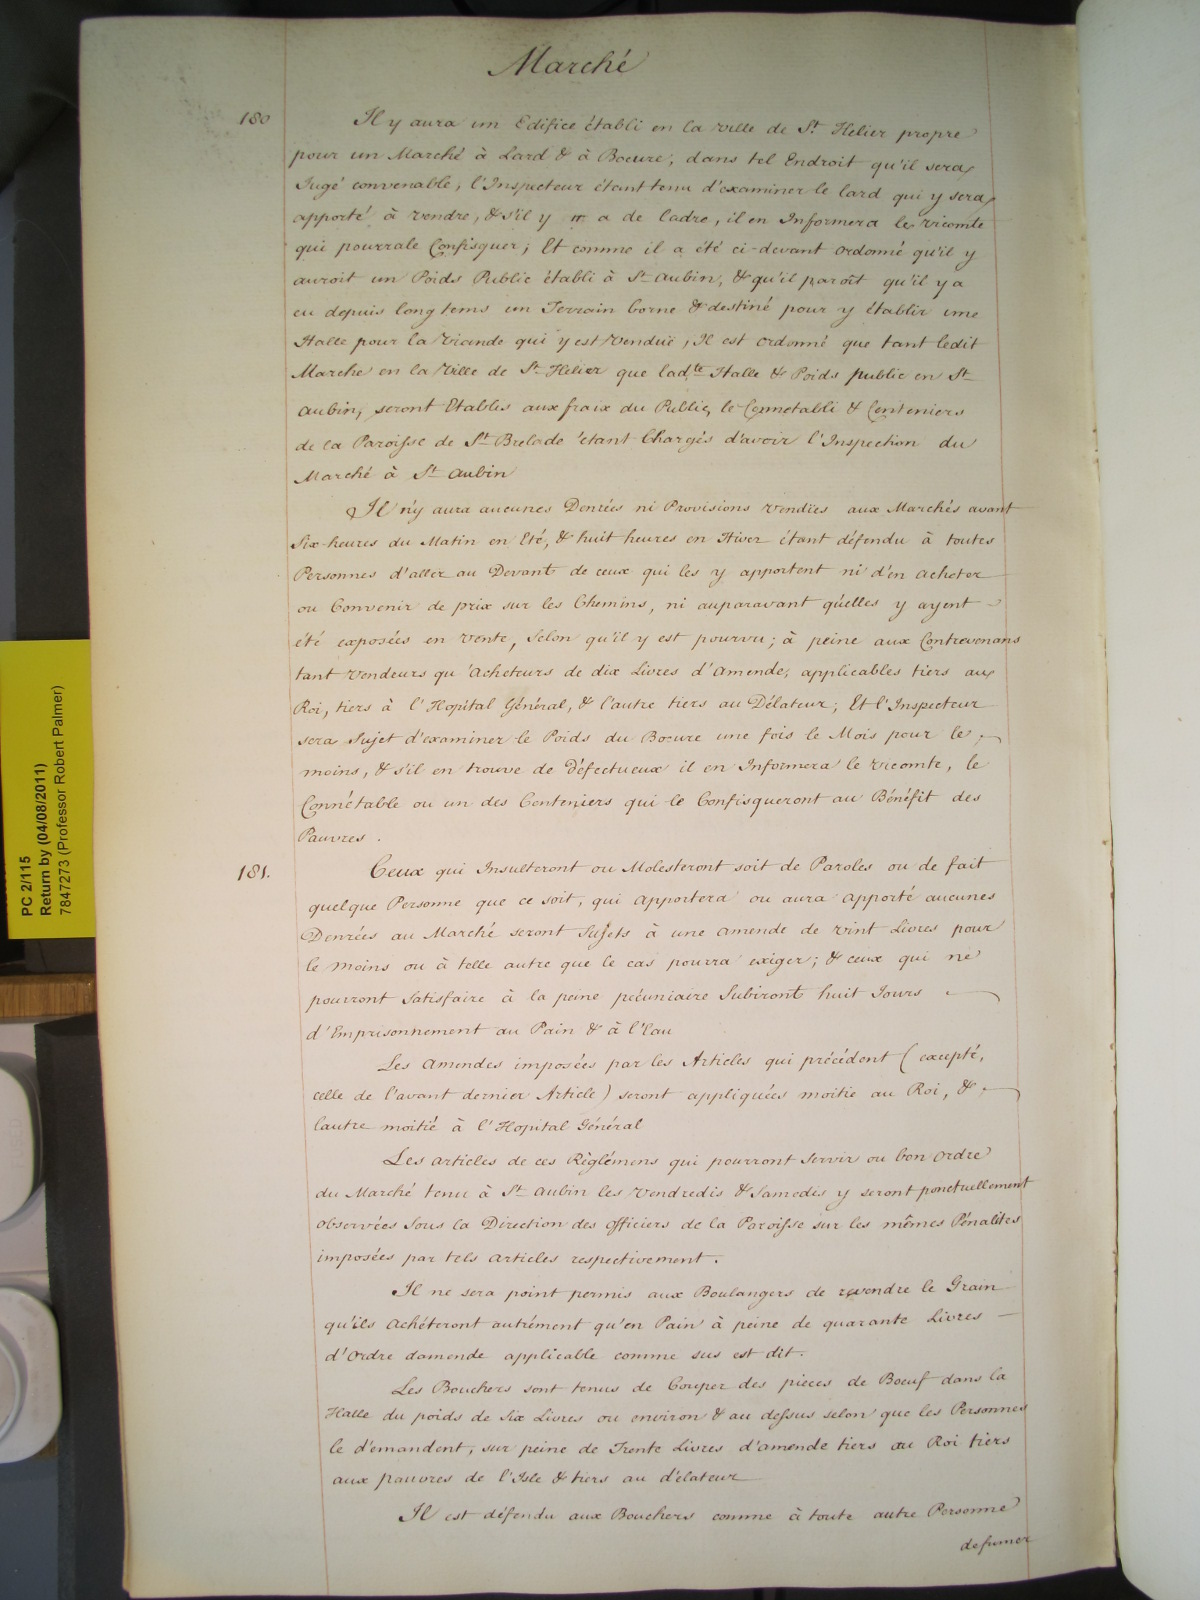 Marché
180
Il y aura un Edifice établi en la ville de St. Helier propre
pour un Marché à Lard & à Boeure, dans tel Endroit qu'il sera
Jugé convenable, l'Inspecteur étant tenu d'examiner le lard qui y sera
apporté à vendre, & s'il y a de ladre, il en Informera le vicomte
qui pourra le Confisquer; Et comme il a été ci-devant ordonné qu'il y
auroit un Poids Public établi à St. Aubin, & qu'il paroît qu'il y a
eu depuis long tems un Terrain borne & destiné pour y établir une
Halle pour la Viande qui y est Venduë, Il est ordonné que tant ledit
Marche en la Ville de St. Helier que ladte. Halle & Poids public en St.
Aubin, seront Etables aux fraix du Public, le Connetabli & Centeniers
de la Paroisse de St. Brelade étant Chargés d'avoir l'Inspection du
Marché à St. Aubin
Il n'y aura aucunes Denrées ni Provisions vendües aux Marchés avant
Six-heures du Matin en Eté, & huit heures en Hiver étant défendu à toutes
Personnes d'aller au Devant de ceux qui les y apportent ni d'en acheter
ou Convenir de prix sur les Chemins, ni auparavant qu'elles y ayent
été exposées en vente, Selon qu'il y est pourvu; à peine aux Contrevenans
tant Vendeurs qu'Acheteurs de dix Livres d'Amende, applicables tiers au
Roi, tiers à l'Hopital Général, & l'autre tiers au Délateur; Et l'Inspecteur
sera Sujet d'examiner le Poids du Boeure une fois le Mois pour le
moins, & s'il en trouve de Défectueux il en Informera le vicomte, le
Connétable ou un des Centeniers qui le Confisqueront au Bénéfit des
Pauvres.
181.
Ceux qui Insulteront ou Molesteront soit de Paroles ou de fait
quelque Personne que ce soit, qui apportera ou aura apporté aucunes
Denrées au Marché seront Sujets à une amende de vint Livres pour
le moins ou à telle autre que le cas pourra exiger; & ceux qui ne
pourront Satisfaire à la peine pécuniaire Subiront huit Jours
d'Emprisonnement au Pain & à l'Eau
Les Amendes imposées par les Articles qui précédent (excepté,
celle de l'avant dernier Article) seront appliquées moitie au Roi, &
lautre moitié à l'Hopital Général
Les articles de ces Règlémens qui pourront servir au bon ordre
du Marché tenu à St. Aubin les Vendredis & Samedis y seront ponctuellement
observées sous la Direction des officiers de la Paroisse sur les mêmes Pénalites
imposées par tels articles respectivement.
Il ne sera point permis aux Boulangers de revendre le Grain
qu'ils Achéteront autrément qu'en Pain à peine de quarante Livres
d'Ordre damende applicable comme sus est dit.
Les Bouchers sont tenus de Couper des pieces de Boeuf dans la
Halle du poids de Six Livres ou environ & au dessus selon que les Personnes
le démandent, sur peine de Trente Livres d'amende tiers au Roi tiers
aux pauvres de l'Isle & tiers au délateur
Il est défendu aux Bouchers comme à toute autre Personne
defumer
PC 2/115
Return by (04/08/2011)
7847273 (Professor Robert Palmer)